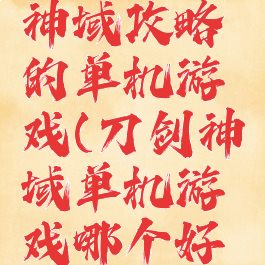 神域攻略
的单机游
戏(刀剑神
域单机游
戏哪个好